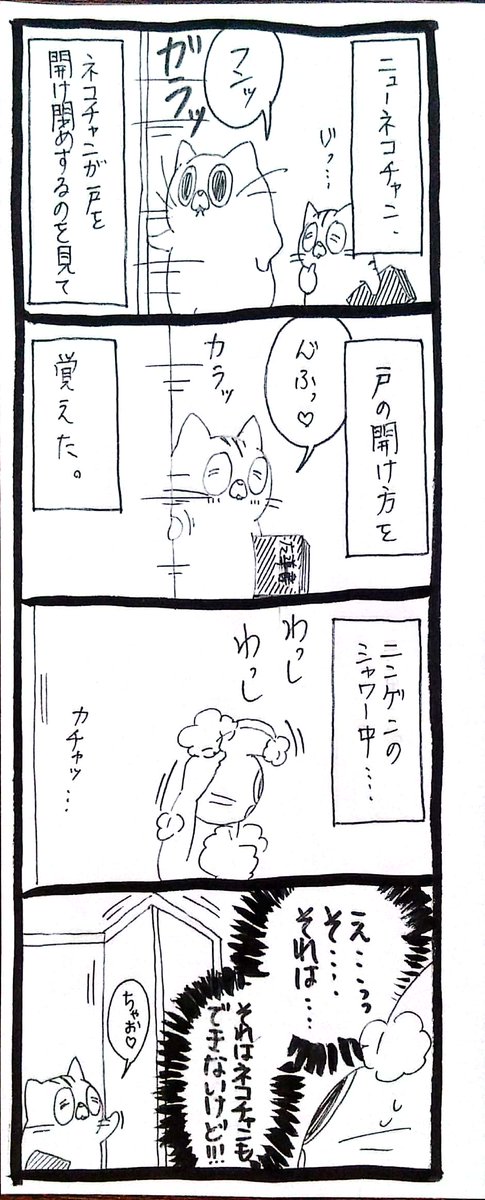 ニューネコチャン、
じっ…
フンッ
ガラッ
ネコチャンが戸を
開け閉めするのを見て
戸の開け方を
んふっ♡
カラッ
覚えた。
ニンゲンの
シャワー中…
わっし
わっし
カチャッ…
え…っっ
そ…
それは…
それはネコチャンも
できないけど!!!
ちゃお♡